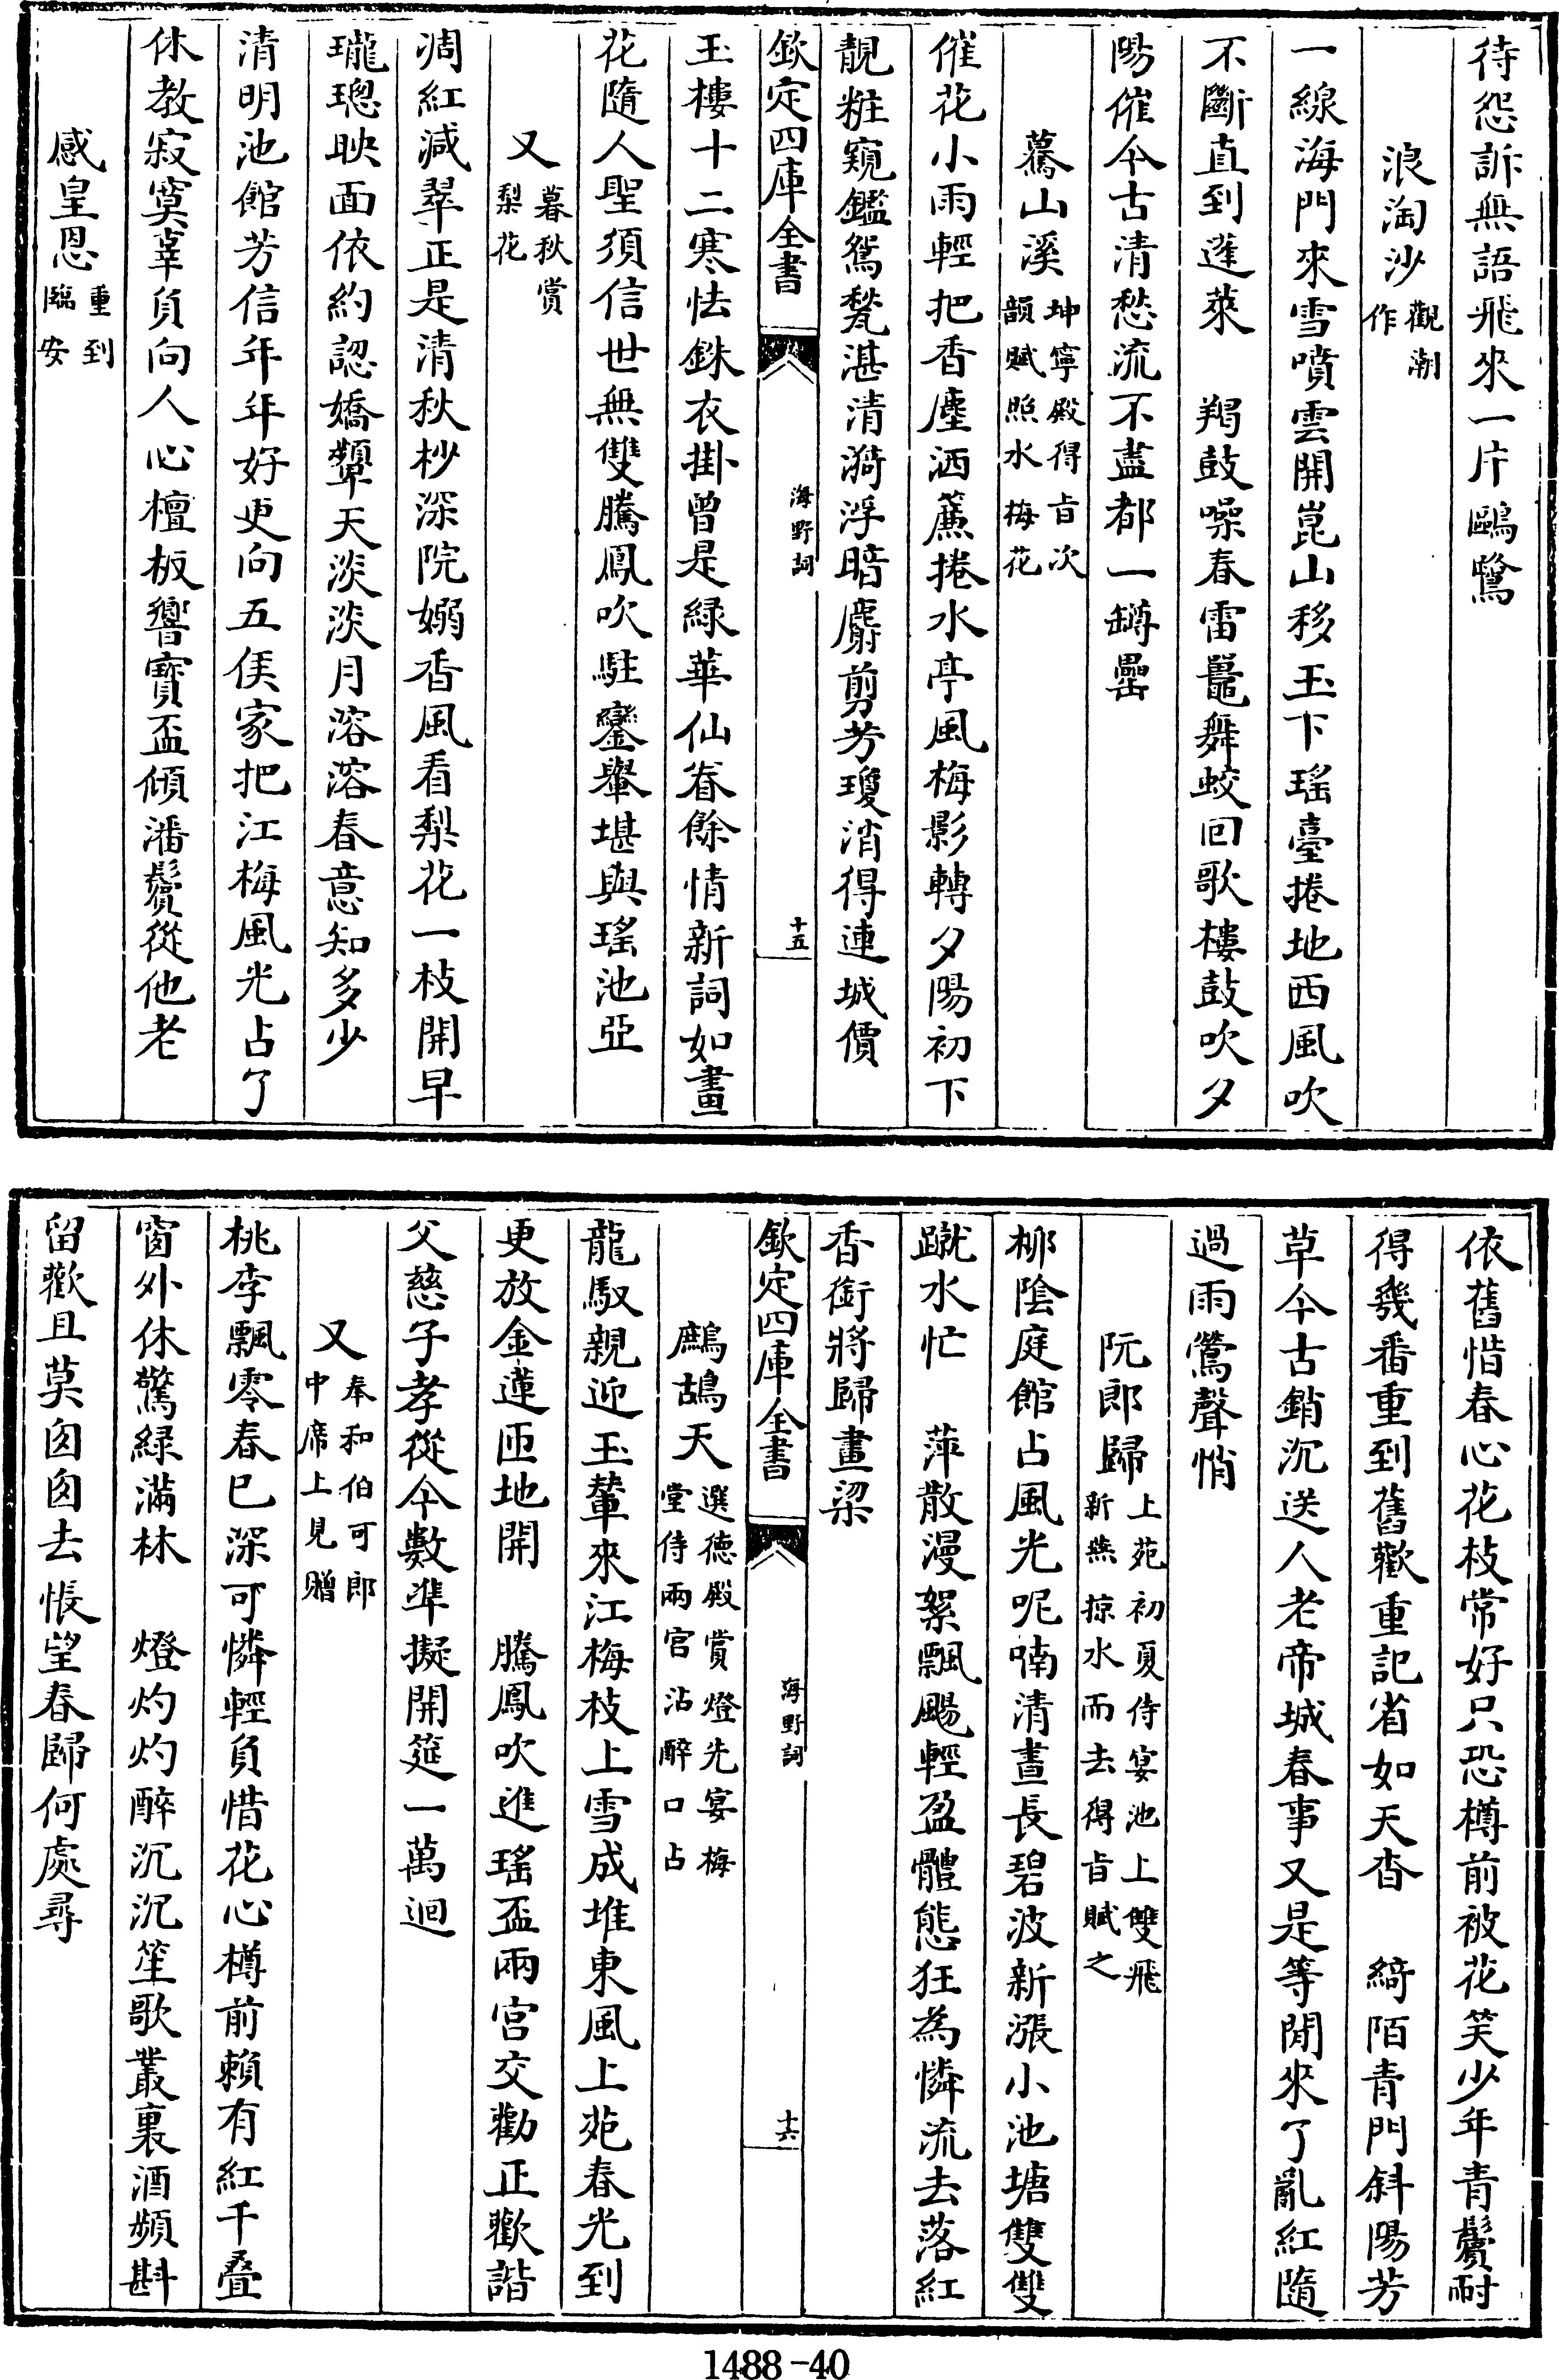 待怨訴無語飛來一片鷗鷺
浪淘沙觀潮作
一線海門來雪噴雲開崑山移玉下瑤臺捲地西風吹
不斷直到蓬萊　羯鼓噪春雷鼉舞蛟回歌樓鼓吹夕
陽催今古清愁流不盡都一罇罍
驀山溪坤寧殿得㫖次韻賦照水梅花
催花小雨輕把香塵洒簾捲水亭風梅影轉夕陽初下
靚粧窺鑑鴛甃湛清漪浮暗麝剪芳瓊消得連城價
欽定四庫全書
海野詞
十五
玉樓十二寒怯銖衣掛曾是緑華仙眷餘情新詞如畫
花隨人聖須信世無雙騰鳳吹駐鑾轝堪與瑤池亞
又暮秋賞梨花
凋紅減翠正是清秋杪深院嫋香風看梨花一枝開早
瓏璁映面依約認嬌顰天淡淡月溶溶春意知多少
清明池館芳信年年好更向五侯家把江梅風光占了
休教寂寞辜負向人心檀板響寶盃傾潘鬢從他老
感皇恩重到臨安
依舊惜春心花枝常好只恐樽前被花笑少年青鬢耐
得幾番重到舊歡重記省如天杳　綺陌青門斜陽芳
草今古銷沉送人老帝城春事又是等閒來了亂紅隨
過雨鶯聲悄
阮郎歸上苑初夏侍宴池上雙飛新燕掠水而去得㫖賦之
栁陰庭館占風光呢喃清晝長碧波新漲小池塘雙雙
蹴水忙　萍散漫絮飄颺輕盈體態狂為憐流去落紅
香銜將歸畫梁
欽定四庫全書
海野詞
十六
鷓鴣天選德殿賞燈先宴梅堂侍兩宮沾醉口占
龍馭親迎玉輦來江梅枝上雪成堆東風上苑春光到
更放金蓮匝地開　騰鳳吹進瑤盃兩宮交勸正歡諧
父慈子孝從今數準擬開筵一萬迴
又奉和伯可郎中席上見贈
桃李飄零春已深可憐輕負惜花心樽前賴有紅千疊
窗外休驚緑滿林　燈灼灼醉沉沉笙歌叢裏酒頻斟
留歡且莫匆匆去悵望春歸何處尋
1488-40